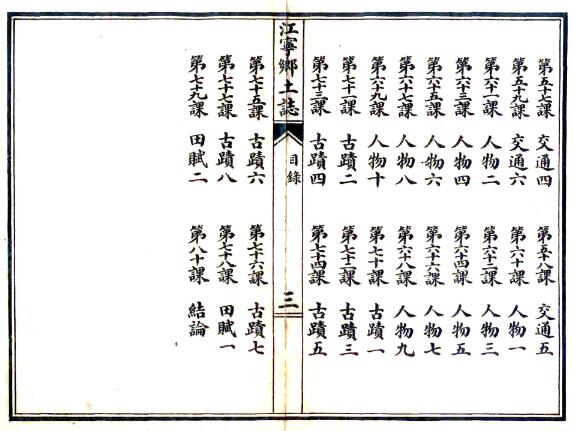 第五十七課 交通四 第五十八課 交通五
第五十九課 交通六 第六十課 人物一
第六十一課 人物二 第六十二課 人物三
第六十三課 人物四 第六十四課 人物五
第六十五課 人物六 第六十六課 人物七
第六十七課 人物八 第六十八課 人物九
第六十九課 人物十 第七十課 古蹟一
第七十一課 古蹟二 第七十二課 古蹟三
第七十三課 古蹟四 第七十四課 古蹟五
江寧鄉土誌 目錄 三
第七十五課 古蹟六 第七十六課 古蹟七
第七十七課 古蹟八 第七十八課 田賦一
第七十九課 田賦二 第八十課 結論